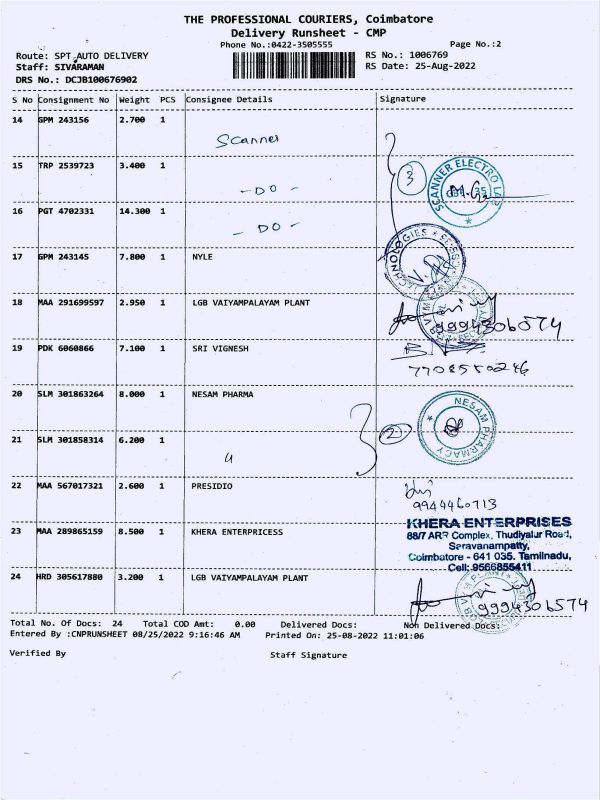 THE PROFESSIONAL COURIERS, Coimbatore
Delivery Runsheet - CMP
Phone No.:0422-3505555 Page No.:2
Route: SPT AUTO DELIVERY RS No.: 1006769
Staff: SIVARAMAN RS Date: 25-Aug-2022
DRS No.: DCJB100676902
S No Consignment No Weight PCS Consignee Details Signature
14 GPM 243156 2.700 1
Scanner
15 TRP 2539723 3.400 1
- DO - 3 SCANNER ELECTRO
16 PGT 4702331 14.300 1
- DO -
17 GPM 243145 7.800 1 NYLE
TECHNOLOGIES
18 MAA 291699597 2.950 1 LGB VAIYAMPALAYAM PLANT
9994306574
19 PDK 6060866 7.100 1 SRI VIGNESH
7708550246
20 SLM 301863264 8.000 1 NESAM PHARMA
NESAM PHARMACY
21 SLM 301858314 6.200 1 2
22 MAA 567017321 2.600 1 PRESIDIO
9944460713
KHERA ENTERPRISES
23 MAA 289865159 8.500 1 KHERA ENTERPRICESS 88/7 ARR Complex, Thudiyalur Road,
Saravanampatty,
Coimbatore - 641 035. Tamilnadu,
Cell: 9566855411
24 HRD 305617880 3.200 1 LGB VAIYAMPALAYAM PLANT
9994306574
Total No. Of Docs: 24 Total COD Amt: 0.00 Delivered Docs: Non Delivered Docs:
Entered By :CNPRUNSHEET 08/25/2022 9:16:46 AM Printed On: 25-08-2022 11:01:06
Verified By Staff Signature